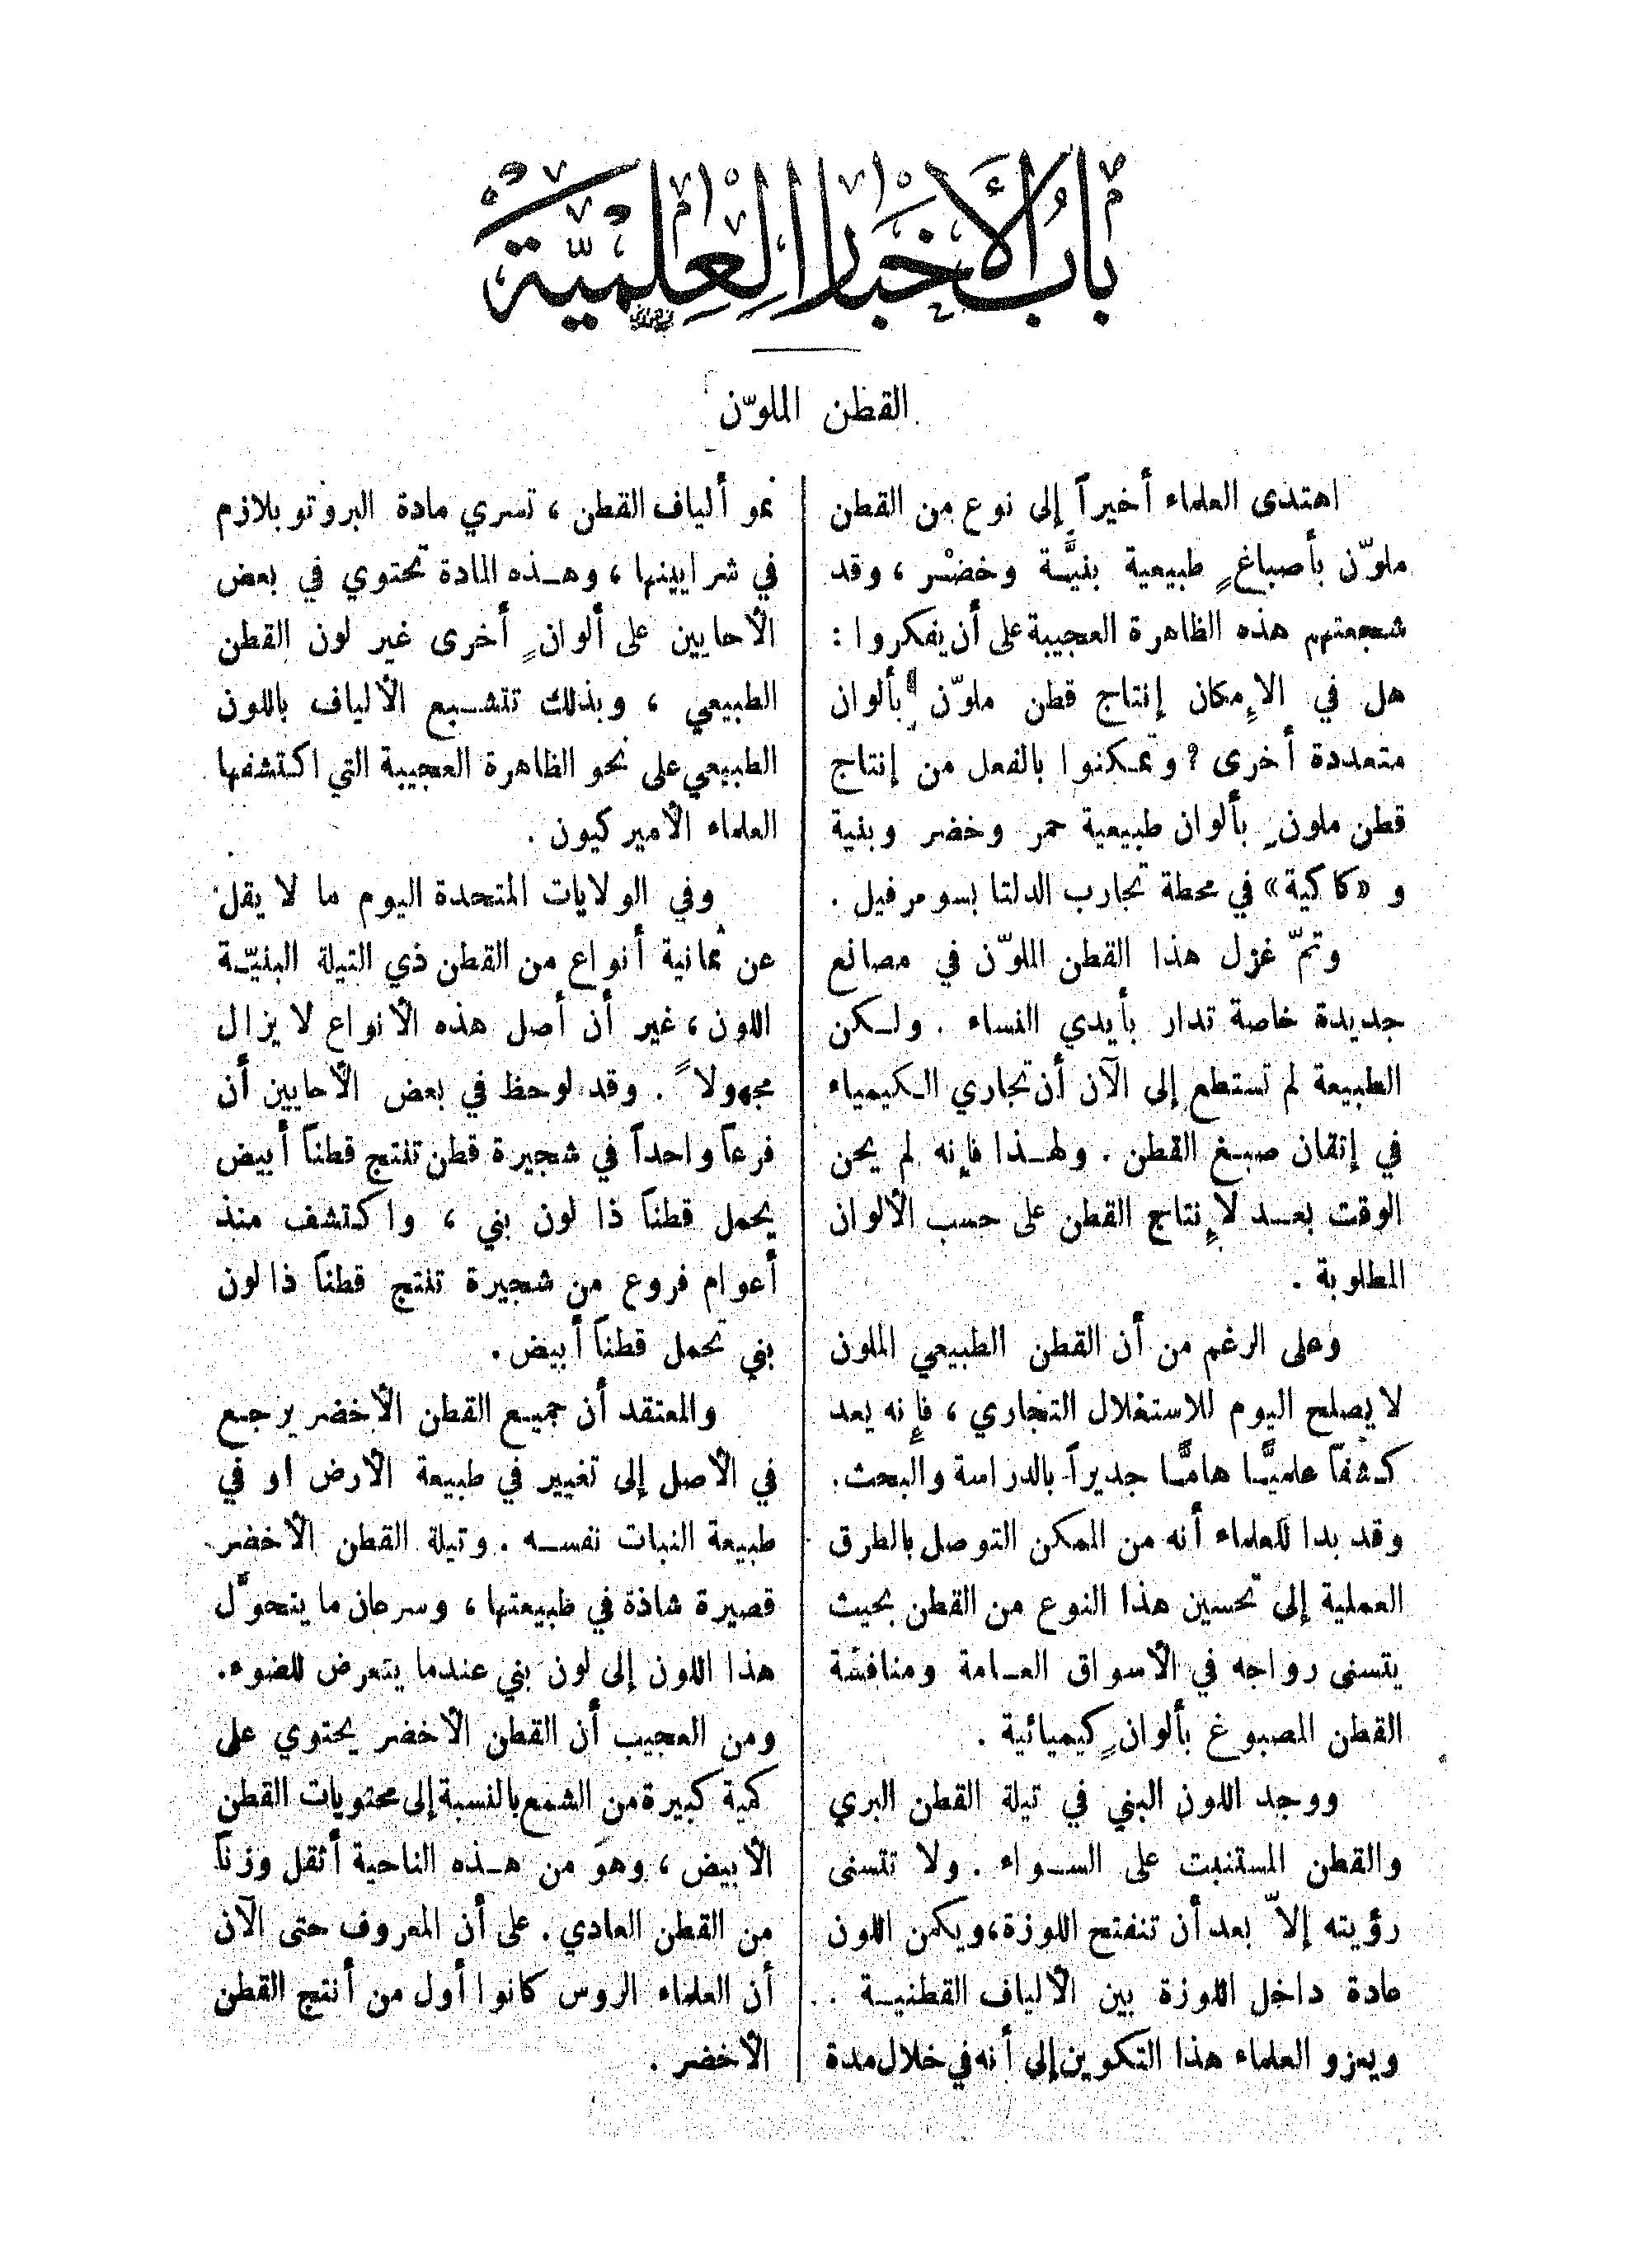 باب الأخبار العلمية
القطن الملوّن
اهتدى العلماء أخيراً إلى نوع من القطن
ملوّن بأصباغٍ طبيعية بنيَّة وخضْر ، وقد
شجعتهم هذه الظاهرة العجيبة على أن يفكروا :
هل في الإمكان إنتاج قطن ملوّن بألوان
متعددة أخرى ؟ وتمكنوا بالفعل من إنتاج
قطن ملونٍ بألوان طبيعية حمر وخضر وبنية
و «كاكية» في محطة تجارب الدلتا بسومرفيل .
وتمّ غزل هذا القطن الملوّن في مصانع
جديدة خاصة تدار بأيدي النساء . ولكن
الطبيعة لم تستطع إلى الآن أن تجاري الكيمياء
في إتقان صبغ القطن . ولهذا فإنه لم يحن
الوقت بعد لإنتاج القطن على حسب الألوان
المطلوبة .
وعلى الرغم من أن القطن الطبيعي الملون
لا يصلح اليوم للاستغلال التجاري ، فإنه يعد
كشفاً علميًّا هامًّا جديراً بالدراسة والبحث .
وقد بدا للعلماء أنه من الممكن التوصل بالطرق
العملية إلى تحسين هذا النوع من القطن بحيث
يتسنى رواجه في الأسواق العامة ومنافسة
القطن المصبوغ بألوانٍ كيميائية .
ووجد اللون البني في تيلة القطن البري
والقطن المستنبت على السواء . ولا تتسنى
رؤيته إلاّ بعد أن تنفتح اللوزة، ويكمن اللون
عادة داخل اللوزة بين الألياف القطنية .
ويعزو العلماء هذا التكوين إلى أنه في خلال مدة
نمو ألياف القطن ، تسري مادة البروتوبلازم
في شرايينها ، وهذه المادة تحتوي في بعض
الأحايين على ألوانٍ أخرى غير لون القطن
الطبيعي ، وبذلك تتشبع الألياف باللون
الطبيعي على نحو الظاهرة العجيبة التي اكتشفها
العلماء الأميركيون .
وفي الولايات المتحدة اليوم ما لا يقل
عن ثمانية أنواع من القطن ذي التيلة البنيّة
اللون ، غير أن أصل هذه الأنواع لا يزال
مجهولاً . وقد لوحظ في بعض الأحايين أن
فرعاً واحداً في شجيرة قطن تنتج قطناً أبيض
يحمل قطناً ذا لون بني ، واكتشف منذ
أعوام فروع من شجيرة تنتج قطناً ذا لون
بني تحمل قطناً أبيض .
والمعتقد أن جميع القطن الأخضر يرجع
في الأصل إلى تغيير في طبيعة الأرض او في
طبيعة النبات نفسه . وتيلة القطن الأخضر
قصيرة شاذة في طبيعتها ، وسرعان ما يتحوَّل
هذا اللون إلى لون بني عندما يتعرض للضوء .
ومن العجيب أن القطن الأخضر يحتوي على
كمية كبيرة من الشمع بالنسبة إلى محتويات القطن
الأبيض ، وهوَ من هذه الناحية أثقل وزناً
من القطن العادي . على أن المعروف حتى الآن
أن العلماء الروس كانوا أول من أنتج القطن
الأخضر .